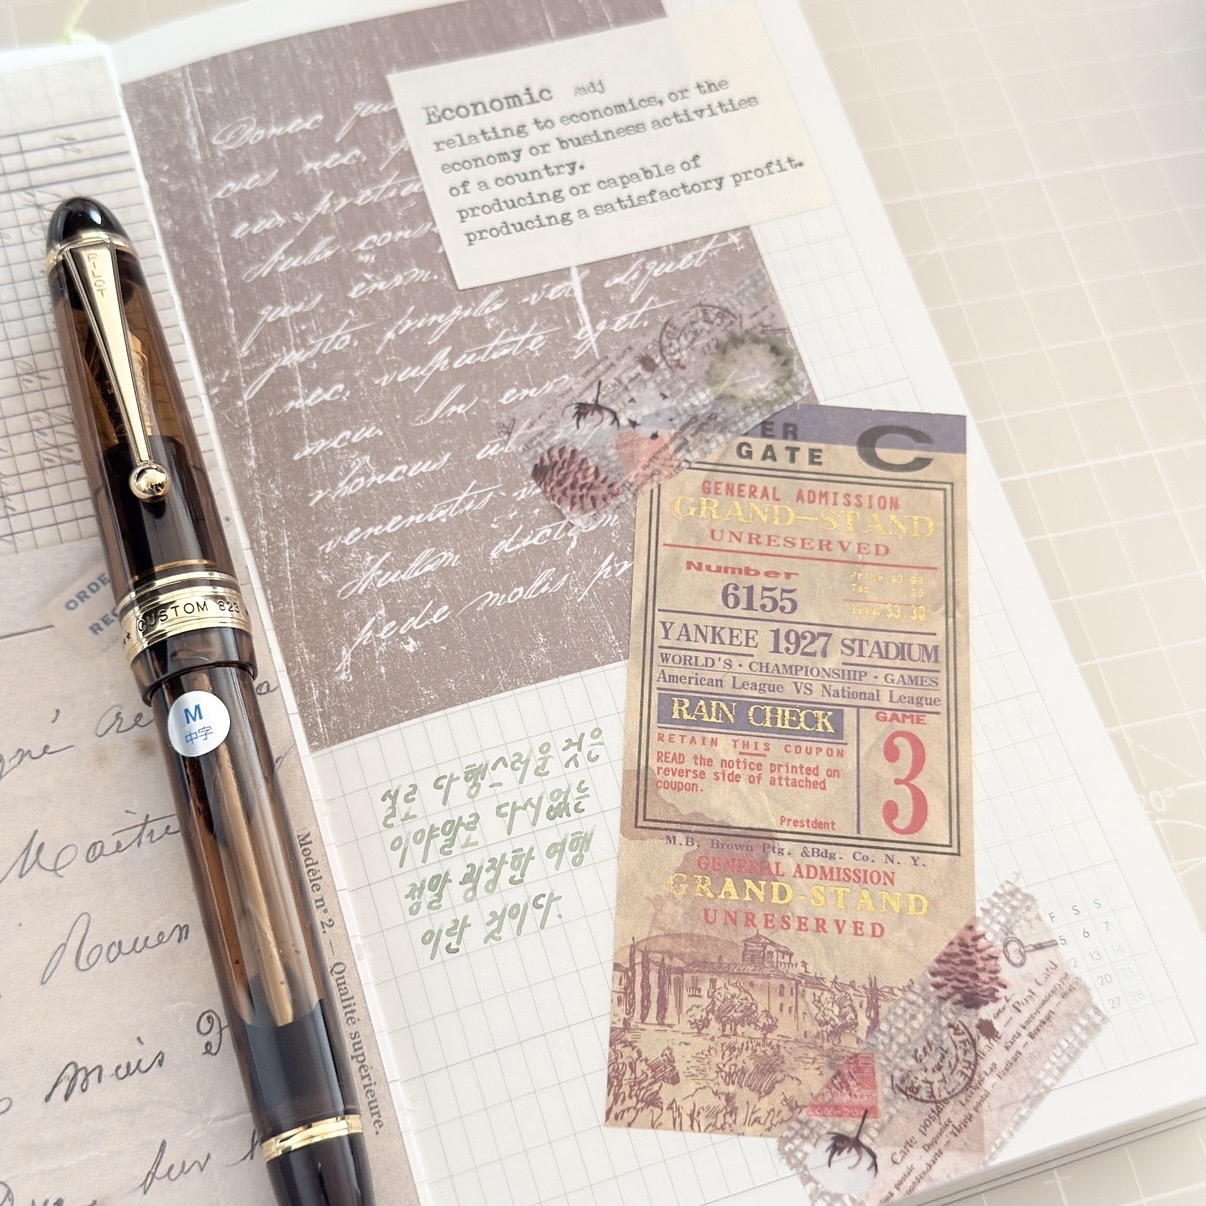 Economic /adj
relating to economics, or the
economy or business activities
of a country.
producing or capable of
producing a satisfactory profit.
Donec
nec
justo. fringilla vel aliquet
nec. vulputate eget.
arcu. In enim
rhoncus
venenatis
Nullam dictum
pede mollis
GATE C
GENERAL ADMISSION
GRAND-STAND
UNRESERVED
Number
6155
Price $3.00
Tax 30
Total $3.30
YANKEE 1927 STADIUM
WORLD'S · CHAMPIONSHIP · GAMES
American League VS National League
RAIN CHECK
RETAIN THIS COUPON
READ the notice printed on
reverse side of attached
coupon.
President
GAME
3
M.B. Brown Ptg. &Bdg. Co. N. Y.
GENERAL ADMISSION
GRAND-STAND
UNRESERVED
실로 다행스러운 것은
이야말로 다시없는
정말 굉장한 여행
이란 것이다.
PILOT
CUSTOM 823
M
中字
Modèle n° 2 — Qualité supérieure.
Maître
Rouen
mais
F S S
5 6 7
12 13 14
20 21
27 28
Post Card
Carte postale